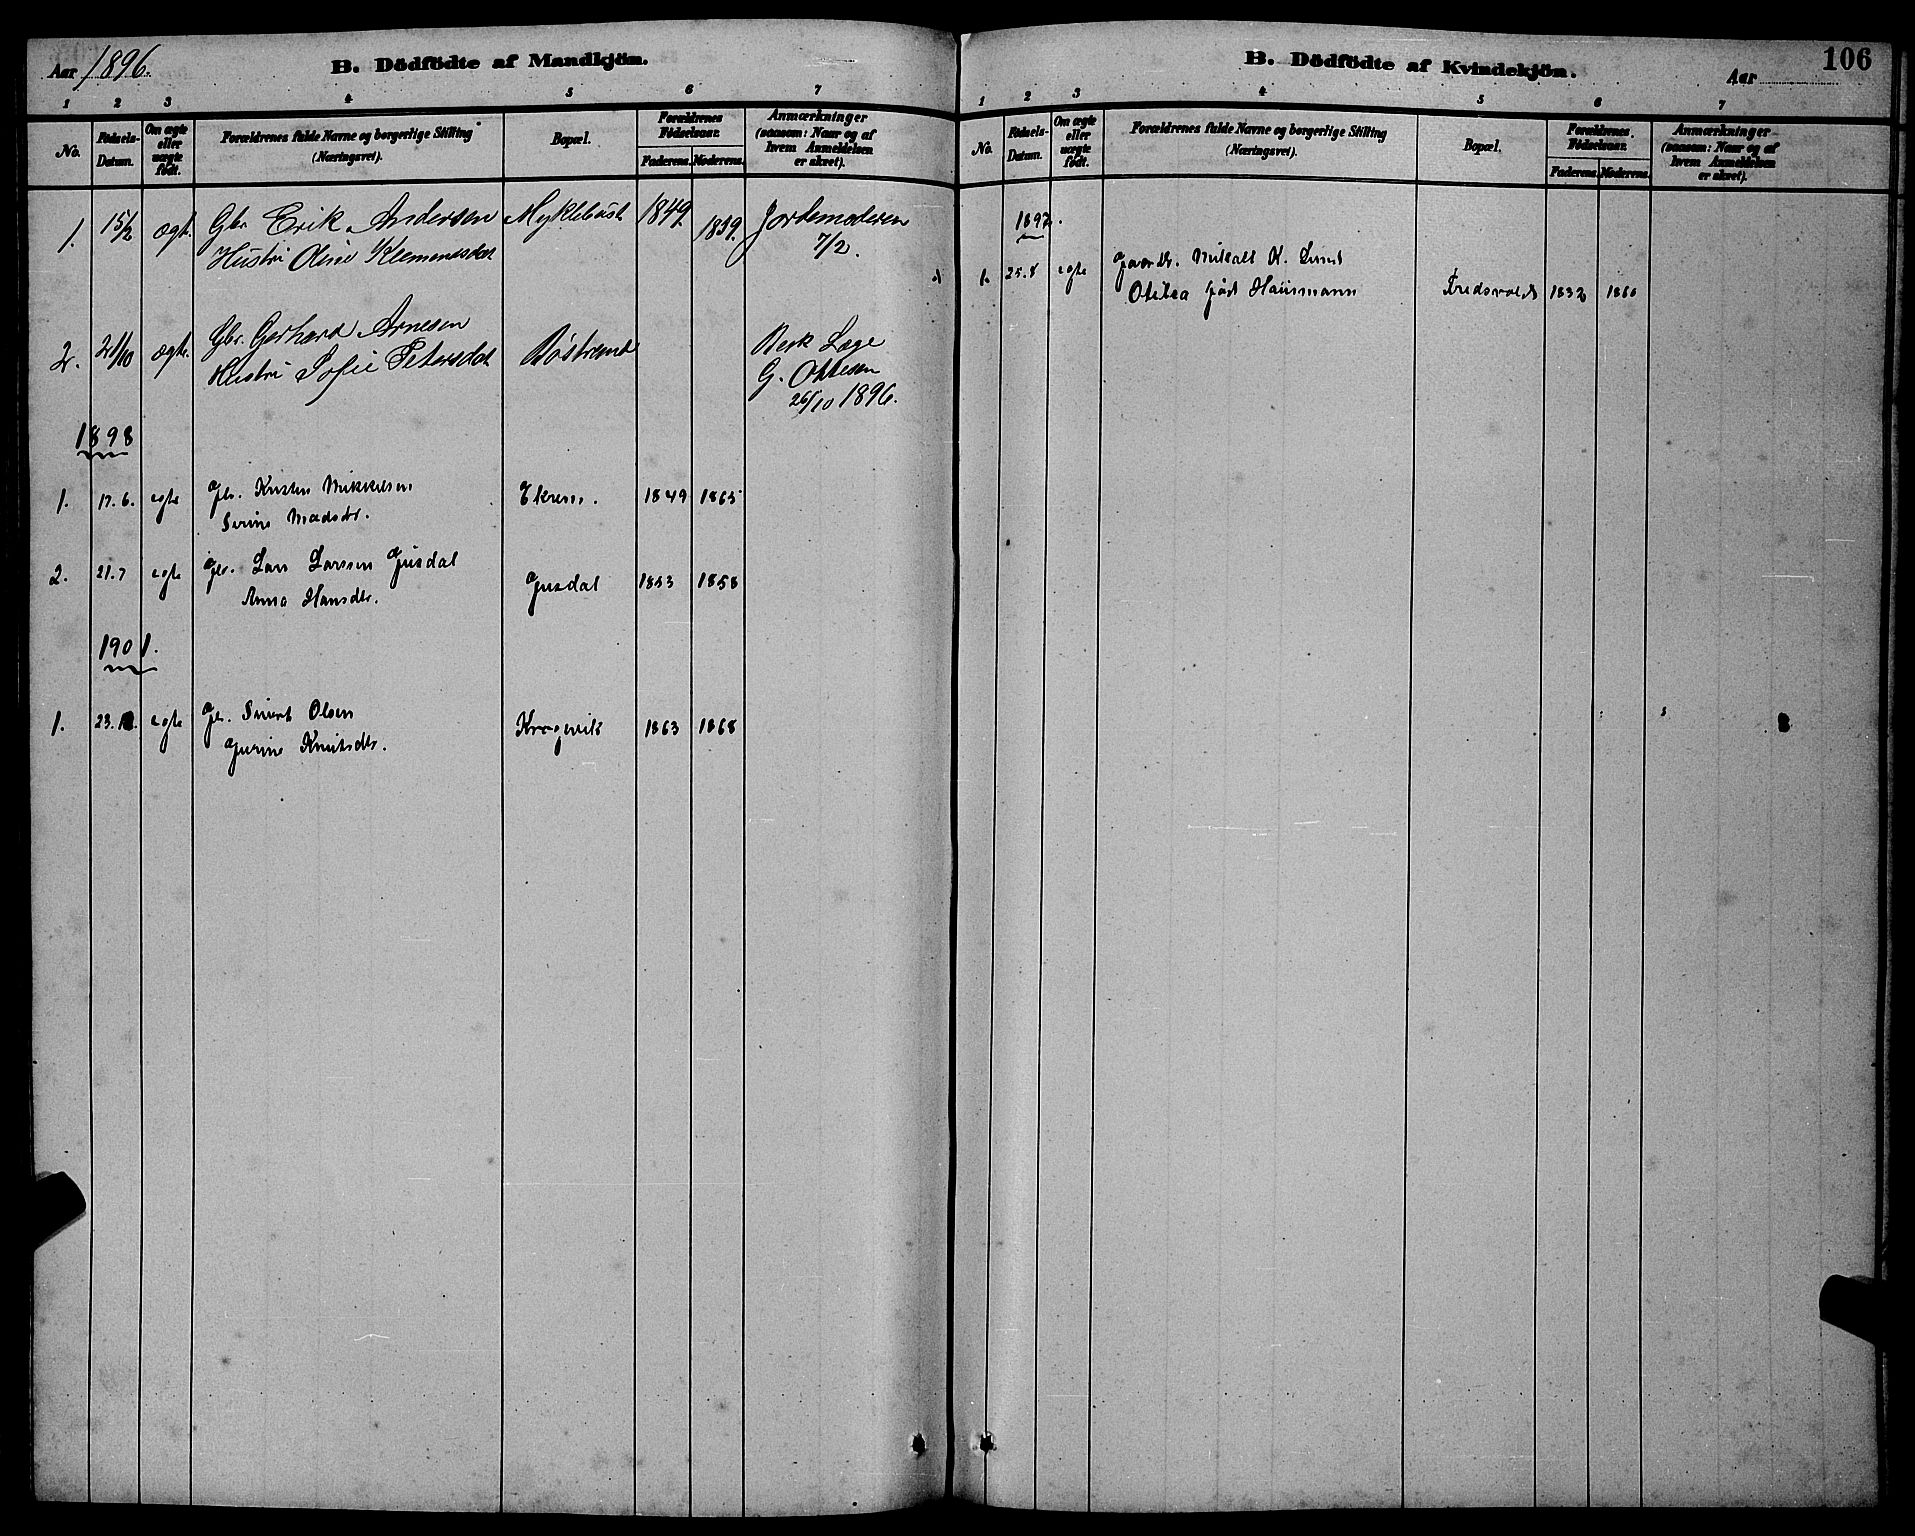 Aar 1896.
B. Dödfödte af Mandkjön.
1 2 3 4 5 6 7
No.
Födsels-
Datum.
Om ægte
eller
uægte
født.
Forældrenes fulde Navne og borgerlige Stilling
(Næringsvei).
Bopæl.
Forældrenes
Födselsaar.
Faderens. Moderens.
Anmærkninger
(saasom: Naar og af
hvem Anmeldelsen
er skeet).
1. 15/2 ægt. Gbr. Erik Andersen Myklebost 1849. 1839. Jordemoderen
Hustru Oline Klemmesdat 7/2.
2. 21/10 ægte. Gbr. Gerhard Arnesen
Hustru Sofie Petersdat Röstrand Besk Læge
G. Ottesen
26/10 1896.
1898
1. 17.6. egte Gbr. Kristen Mikkelsen Ekrem. 1849 1865
Serine Madsdtr.
2. 21.7 egte Gbr. Lars Larssen Gjusdal Gjusdal 1853 1858
Anna Hansdtr.
1901.
1. 23. egte Gbr. Sivert Olsen Kragevik 1863 1868
Gurine Knutsdtr.
106
B. Dödfödte af Kvindekjön.
Aar
1 2 3 4 5 6 7
No.
Födsels-
Datum.
Om ægte
eller
uægte
født.
Forældrenes fulde Navne og borgerlige Stilling
(Næringsvei).
Bopæl.
Forældrenes
Födselsaar.
Faderens. Moderens.
Anmærkninger
(saasom: Naar og af
hvem Anmeldelsen
er skeet).
1897.
1. 25.8 egte Mikael K. Lund
Otilia født Hausmann Fredsvold 1832 1860